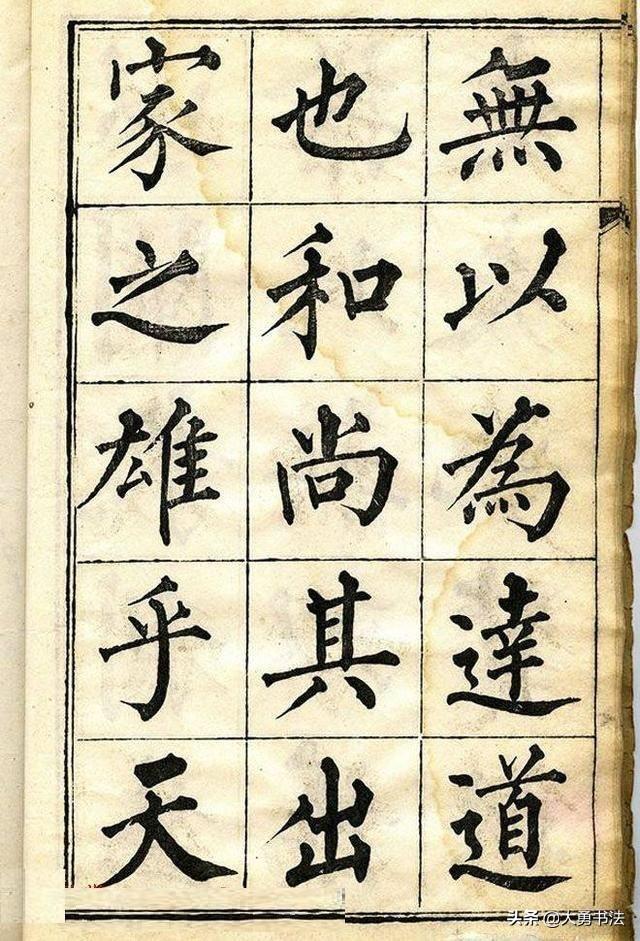 無以為達道
也和尚其出
家之雄乎天
头条 @大勇书法